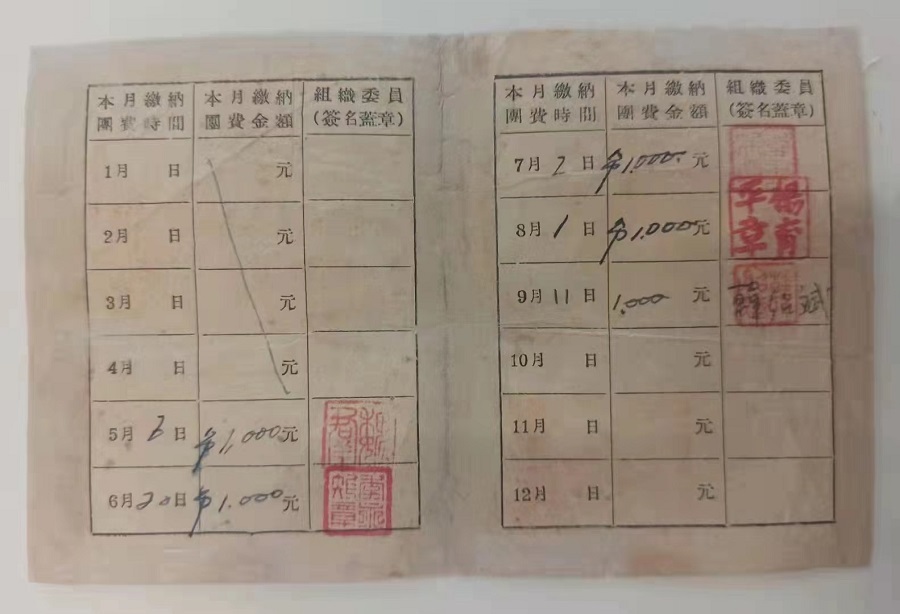 本月繳納團費時間 本月繳納團費金額 組織委員(簽名蓋章)
1月 日 元
2月 日 元
3月 日 元
4月 日 元
5月 日 1,000元
6月20日 1.000元
本月繳納團費時間 本月繳納團費金額 組織委員(簽名蓋章)
7月2日 1.000 元
8月1日 1.000元 楊育平章
9月11日 1.000 元
10月 日 元
11月 日 元
12月 日 元